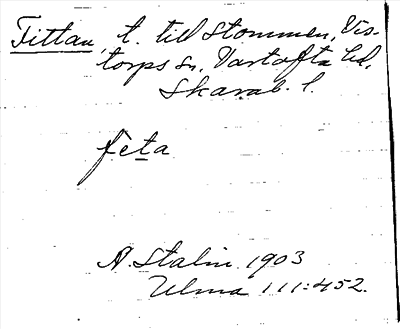 Tittan, t. till Stommen, Vis-
torps sn, Vartofta hd,
Skarab. l.
feta
A. Stalin 1903
Ulma 111:452.